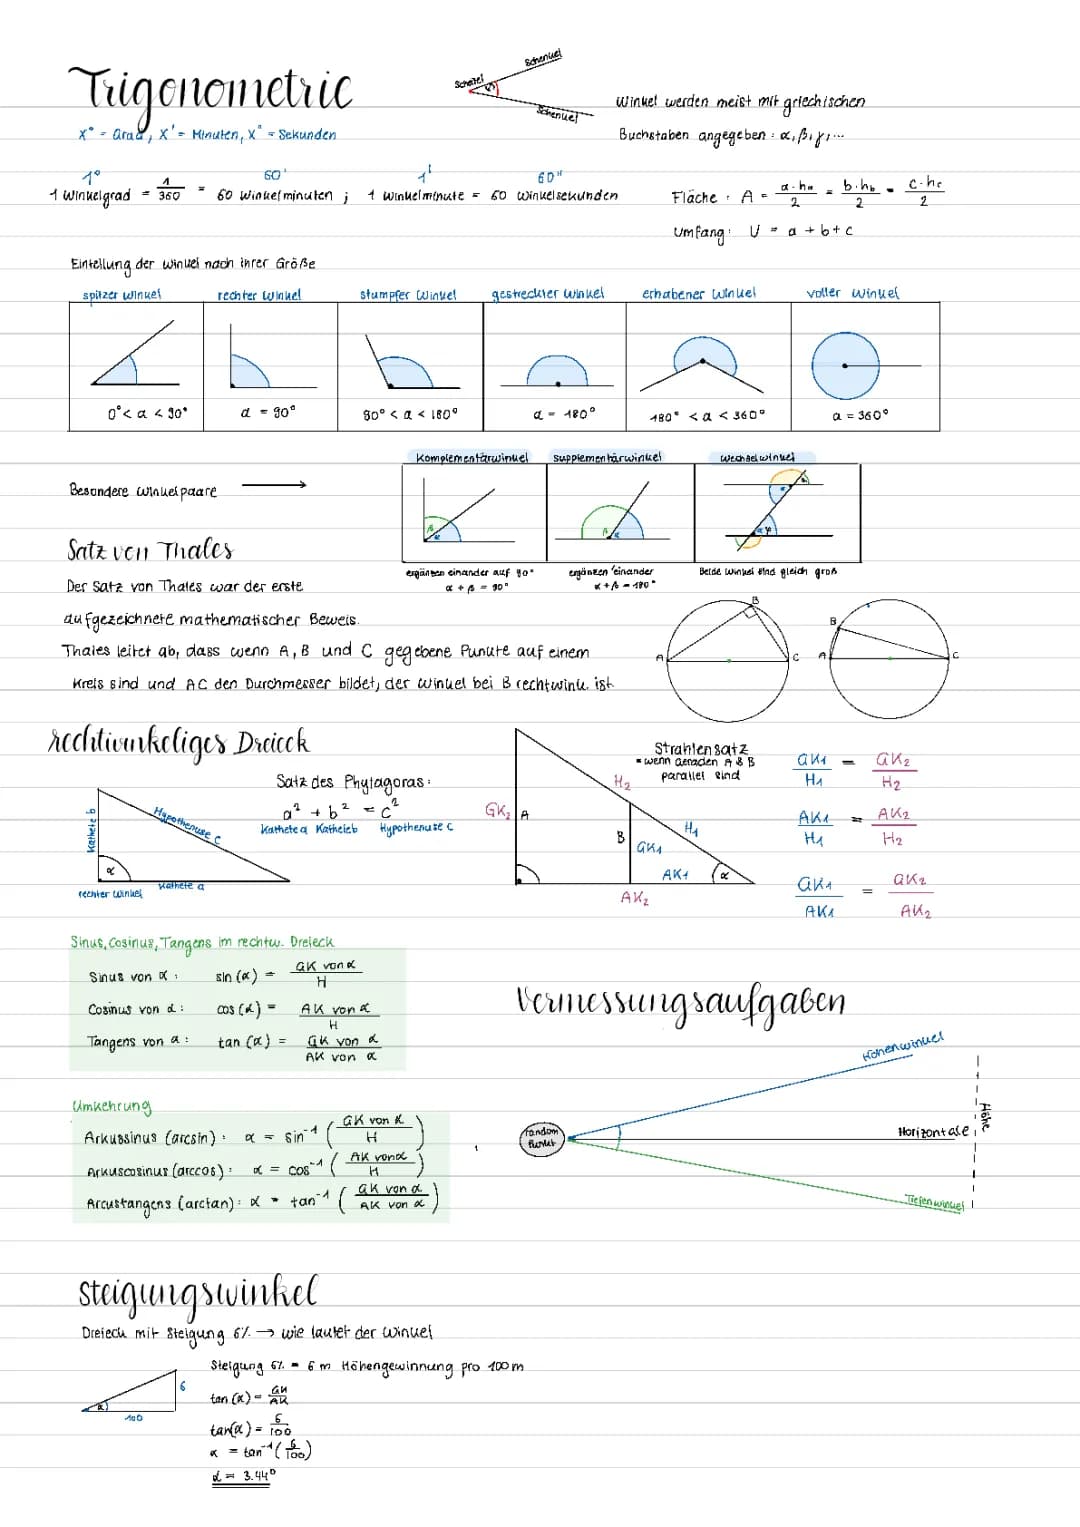 Trigonometrie
Scheitel
Schenkel
Schenkel
x° = Grad, x' = Minuten, x" = Sekunden
Winkel werden meist mit griechischen
Buchstaben angegeben: α, β, γ, ...
1° 60' 1' 60"
1 Winkelgrad = 1/360 = 60 Winkelminuten ; 1 Winkelminute = 60 Winkelsekunden
Fläche: A = a·ha/2 = b·hb/2 = c·hc/2
Umfang: U = a + b + c
Einteilung der Winkel nach ihrer Größe
spitzer Winkel rechter Winkel stumpfer Winkel gestreckter Winkel erhabener Winkel voller Winkel
0° < α < 90° α = 90° 90° < α < 180° α = 180° 180° < α < 360° α = 360°
Komplementärwinkel Supplementärwinkel Wechselwinkel
Besondere Winkelpaare
β α β α
ergänzen einander auf 90° ergänzen einander Beide Winkel sind gleich groß
α + β = 90° α + β = 180°
Satz von Thales
Der Satz von Thales war der erste
aufgezeichnete mathematischer Beweis.
Thales leitet ab, dass wenn A, B und C gegebene Punkte auf einem
Kreis sind und AC den Durchmesser bildet, der Winkel bei B rechtwink. ist
A B C A B C
rechtwinkeliges Dreieck
Satz des Phytagoras:
a² + b² = c²
Kathete a Kathete b Hypothenuse c
Kathete b
Hypothenuse c
α
rechter Winkel
Kathete a
Strahlensatz
= wenn Geraden A & B
parallel sind
H2
GK2 A
B
GK1
H1
AK1 α
AK2
GK1/H1 = GK2/H2
AK1/H1 = AK2/H2
GK1/AK1 = GK2/AK2
Sinus, Cosinus, Tangens im rechtw. Dreieck
Sinus von α: sin (α) = GK von α/H
Cosinus von α: cos (α) = AK von α/H
Tangens von α: tan (α) = GK von α/AK von α
Umkehrung
Arkussinus (arcsin): α = sin⁻¹ (GK von α/H)
Arkuscosinus (arccos): α = cos⁻¹ (AK von α/H)
Arcustangens (arctan): α = tan⁻¹ (GK von α/AK von α)
Vermessungsaufgaben
Höhenwinkel
random
Punkt
Horizontale
Höhe
Tiefenwinkel
Steigungswinkel
Dreieck mit Steigung 6% → wie lautet der Winkel
Steigung 6% = 6 m Höhengewinnung pro 100 m
6
α
100
tan (α) = GK/AK
tan(α) = 6/100
α = tan⁻¹ (6/100)
α = 3.44°